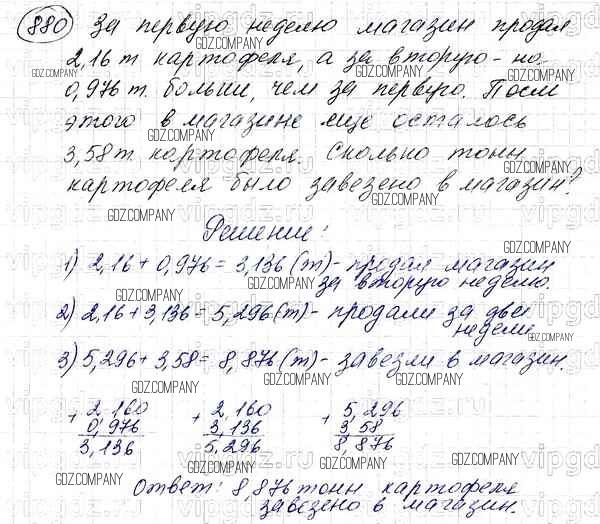 880 За первую неделю магазин продал
2,16 т картофеля, а за вторую - на
0,976 т. больше, чем за первую. После
этого в магазине еще осталось
3,58 т. картофеля. Сколько тонн
картофеля было завезено в магазин?
Решение:
1) 2,16 + 0,976 = 3,136 (т) - продал магазин
за вторую неделю.
2) 2,16 + 3,136 = 5,296 (т) - продали за две
недели
3) 5,296 + 3,58 = 8,876 (т) - завезли в магазин.
+ 2,160 + 2,160 + 5,296
0,976 3,136 3,58
3,136 5,296 8,876
Ответ: 8,876 тонн картофеля
завезено в магазин.
GDZ.COMPANY
vipgdz.ru